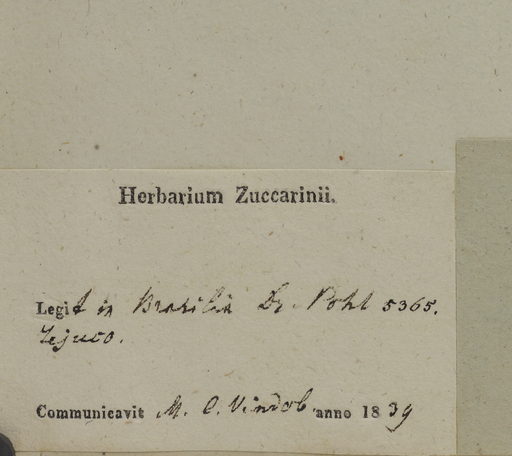 Herbarium Zuccarinii.
Legit in Brasilia Dr. Pohl 5365.
Tejuco.
Communicavit M. C. Vindob. anno 1839